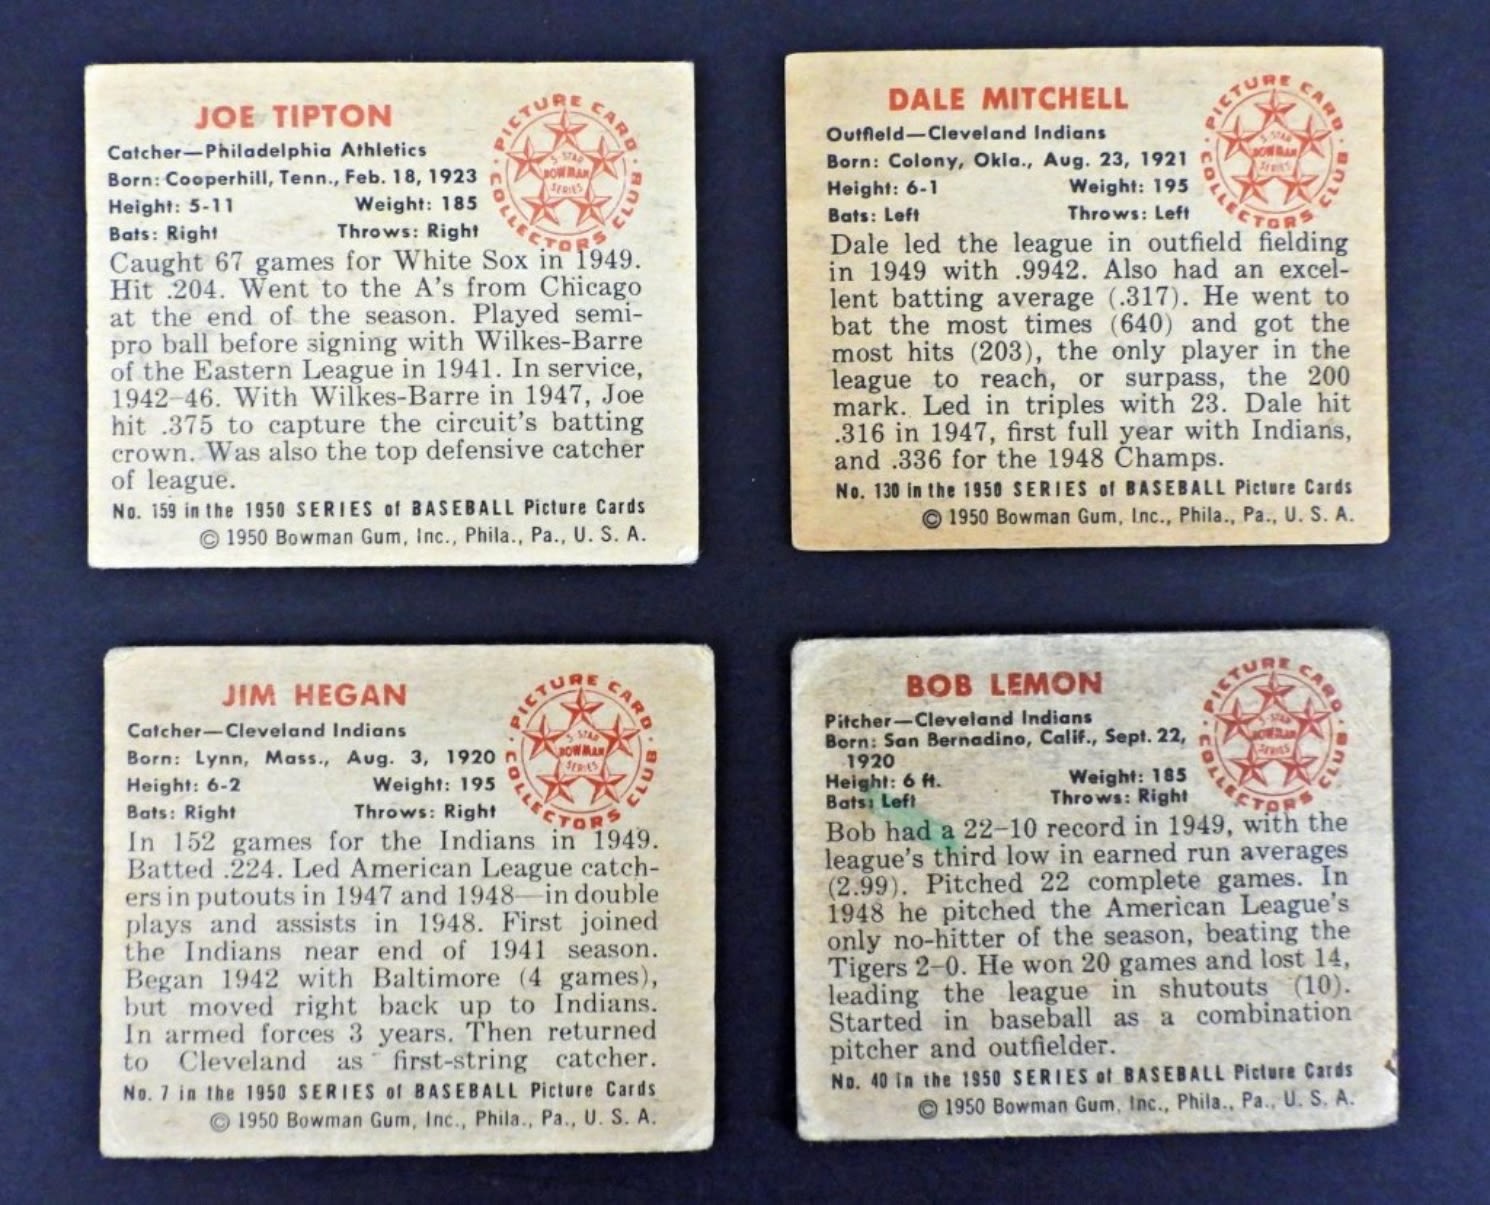 JOE TIPTON
Catcher—Philadelphia Athletics
Born: Cooperhill, Tenn., Feb. 18, 1923
Height: 5-11 Weight: 185
Bats: Right Throws: Right
PICTURE CARD COLLECTORS CLUB
5-STAR
BOWMAN
SERIES
Caught 67 games for White Sox in 1949.
Hit .204. Went to the A's from Chicago
at the end of the season. Played semi-
pro ball before signing with Wilkes-Barre
of the Eastern League in 1941. In service,
1942-46. With Wilkes-Barre in 1947, Joe
hit .375 to capture the circuit's batting
crown. Was also the top defensive catcher
of league.
No. 159 in the 1950 SERIES of BASEBALL Picture Cards
© 1950 Bowman Gum, Inc., Phila., Pa., U. S. A.
DALE MITCHELL
Outfield—Cleveland Indians
Born: Colony, Okla., Aug. 23, 1921
Height: 6-1 Weight: 195
Bats: Left Throws: Left
PICTURE CARD COLLECTORS CLUB
5-STAR
BOWMAN
SERIES
Dale led the league in outfield fielding
in 1949 with .9942. Also had an excel-
lent batting average (.317). He went to
bat the most times (640) and got the
most hits (203), the only player in the
league to reach, or surpass, the 200
mark. Led in triples with 23. Dale hit
.316 in 1947, first full year with Indians,
and .336 for the 1948 Champs.
No. 130 in the 1950 SERIES of BASEBALL Picture Cards
© 1950 Bowman Gum, Inc., Phila., Pa., U. S. A.
JIM HEGAN
Catcher—Cleveland Indians
Born: Lynn, Mass., Aug. 3, 1920
Height: 6-2 Weight: 195
Bats: Right Throws: Right
PICTURE CARD COLLECTORS CLUB
5-STAR
BOWMAN
SERIES
In 152 games for the Indians in 1949.
Batted .224. Led American League catch-
ers in putouts in 1947 and 1948—in double
plays and assists in 1948. First joined
the Indians near end of 1941 season.
Began 1942 with Baltimore (4 games),
but moved right back up to Indians.
In armed forces 3 years. Then returned
to Cleveland as first-string catcher.
No. 7 in the 1950 SERIES of BASEBALL Picture Cards
© 1950 Bowman Gum, Inc., Phila., Pa., U. S. A.
BOB LEMON
Pitcher—Cleveland Indians
Born: San Bernadino, Calif., Sept. 22,
1920
Height: 6 ft. Weight: 185
Bats: Left Throws: Right
PICTURE CARD COLLECTORS CLUB
5-STAR
BOWMAN
SERIES
Bob had a 22-10 record in 1949, with the
league's third low in earned run averages
(2.99). Pitched 22 complete games. In
1948 he pitched the American League's
only no-hitter of the season, beating the
Tigers 2-0. He won 20 games and lost 14,
leading the league in shutouts (10).
Started in baseball as a combination
pitcher and outfielder.
No. 40 in the 1950 SERIES of BASEBALL Picture Cards
© 1950 Bowman Gum, Inc., Phila., Pa., U. S. A.